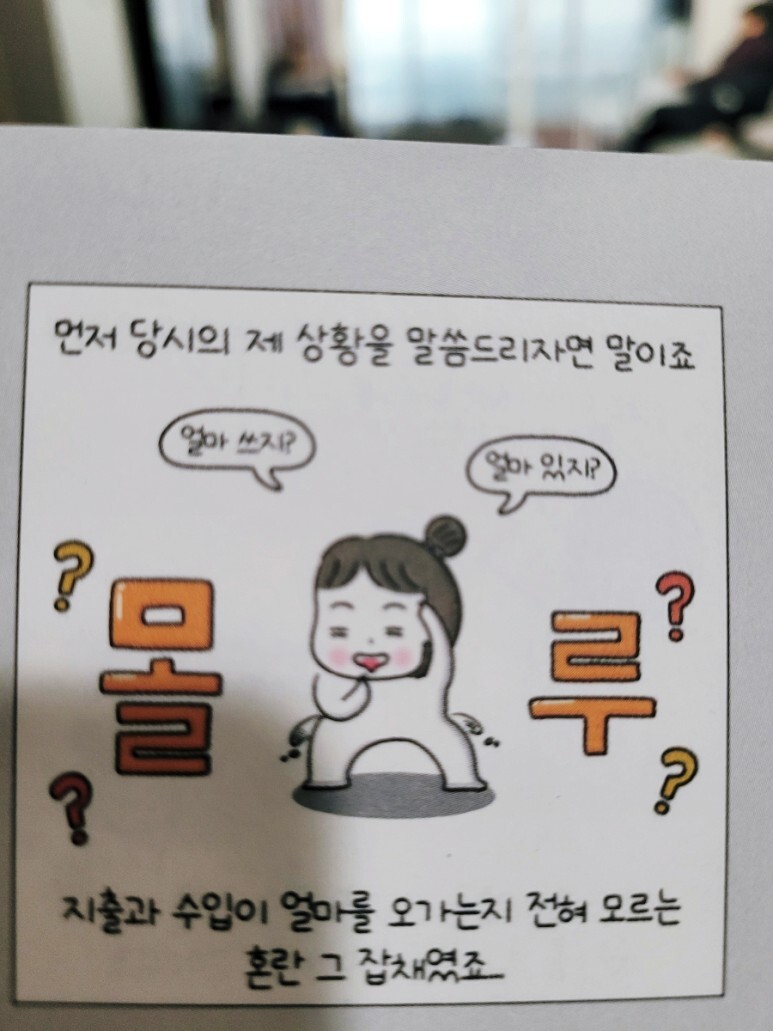 먼저 당시의 제 상황을 말씀드리자면 말이죠
얼마 쓰지?
얼마 있지?
? 몰루 ?
? ?
지출과 수입이 얼마를 오가는지 전혀 모르는
혼란 그 잡채였죠...